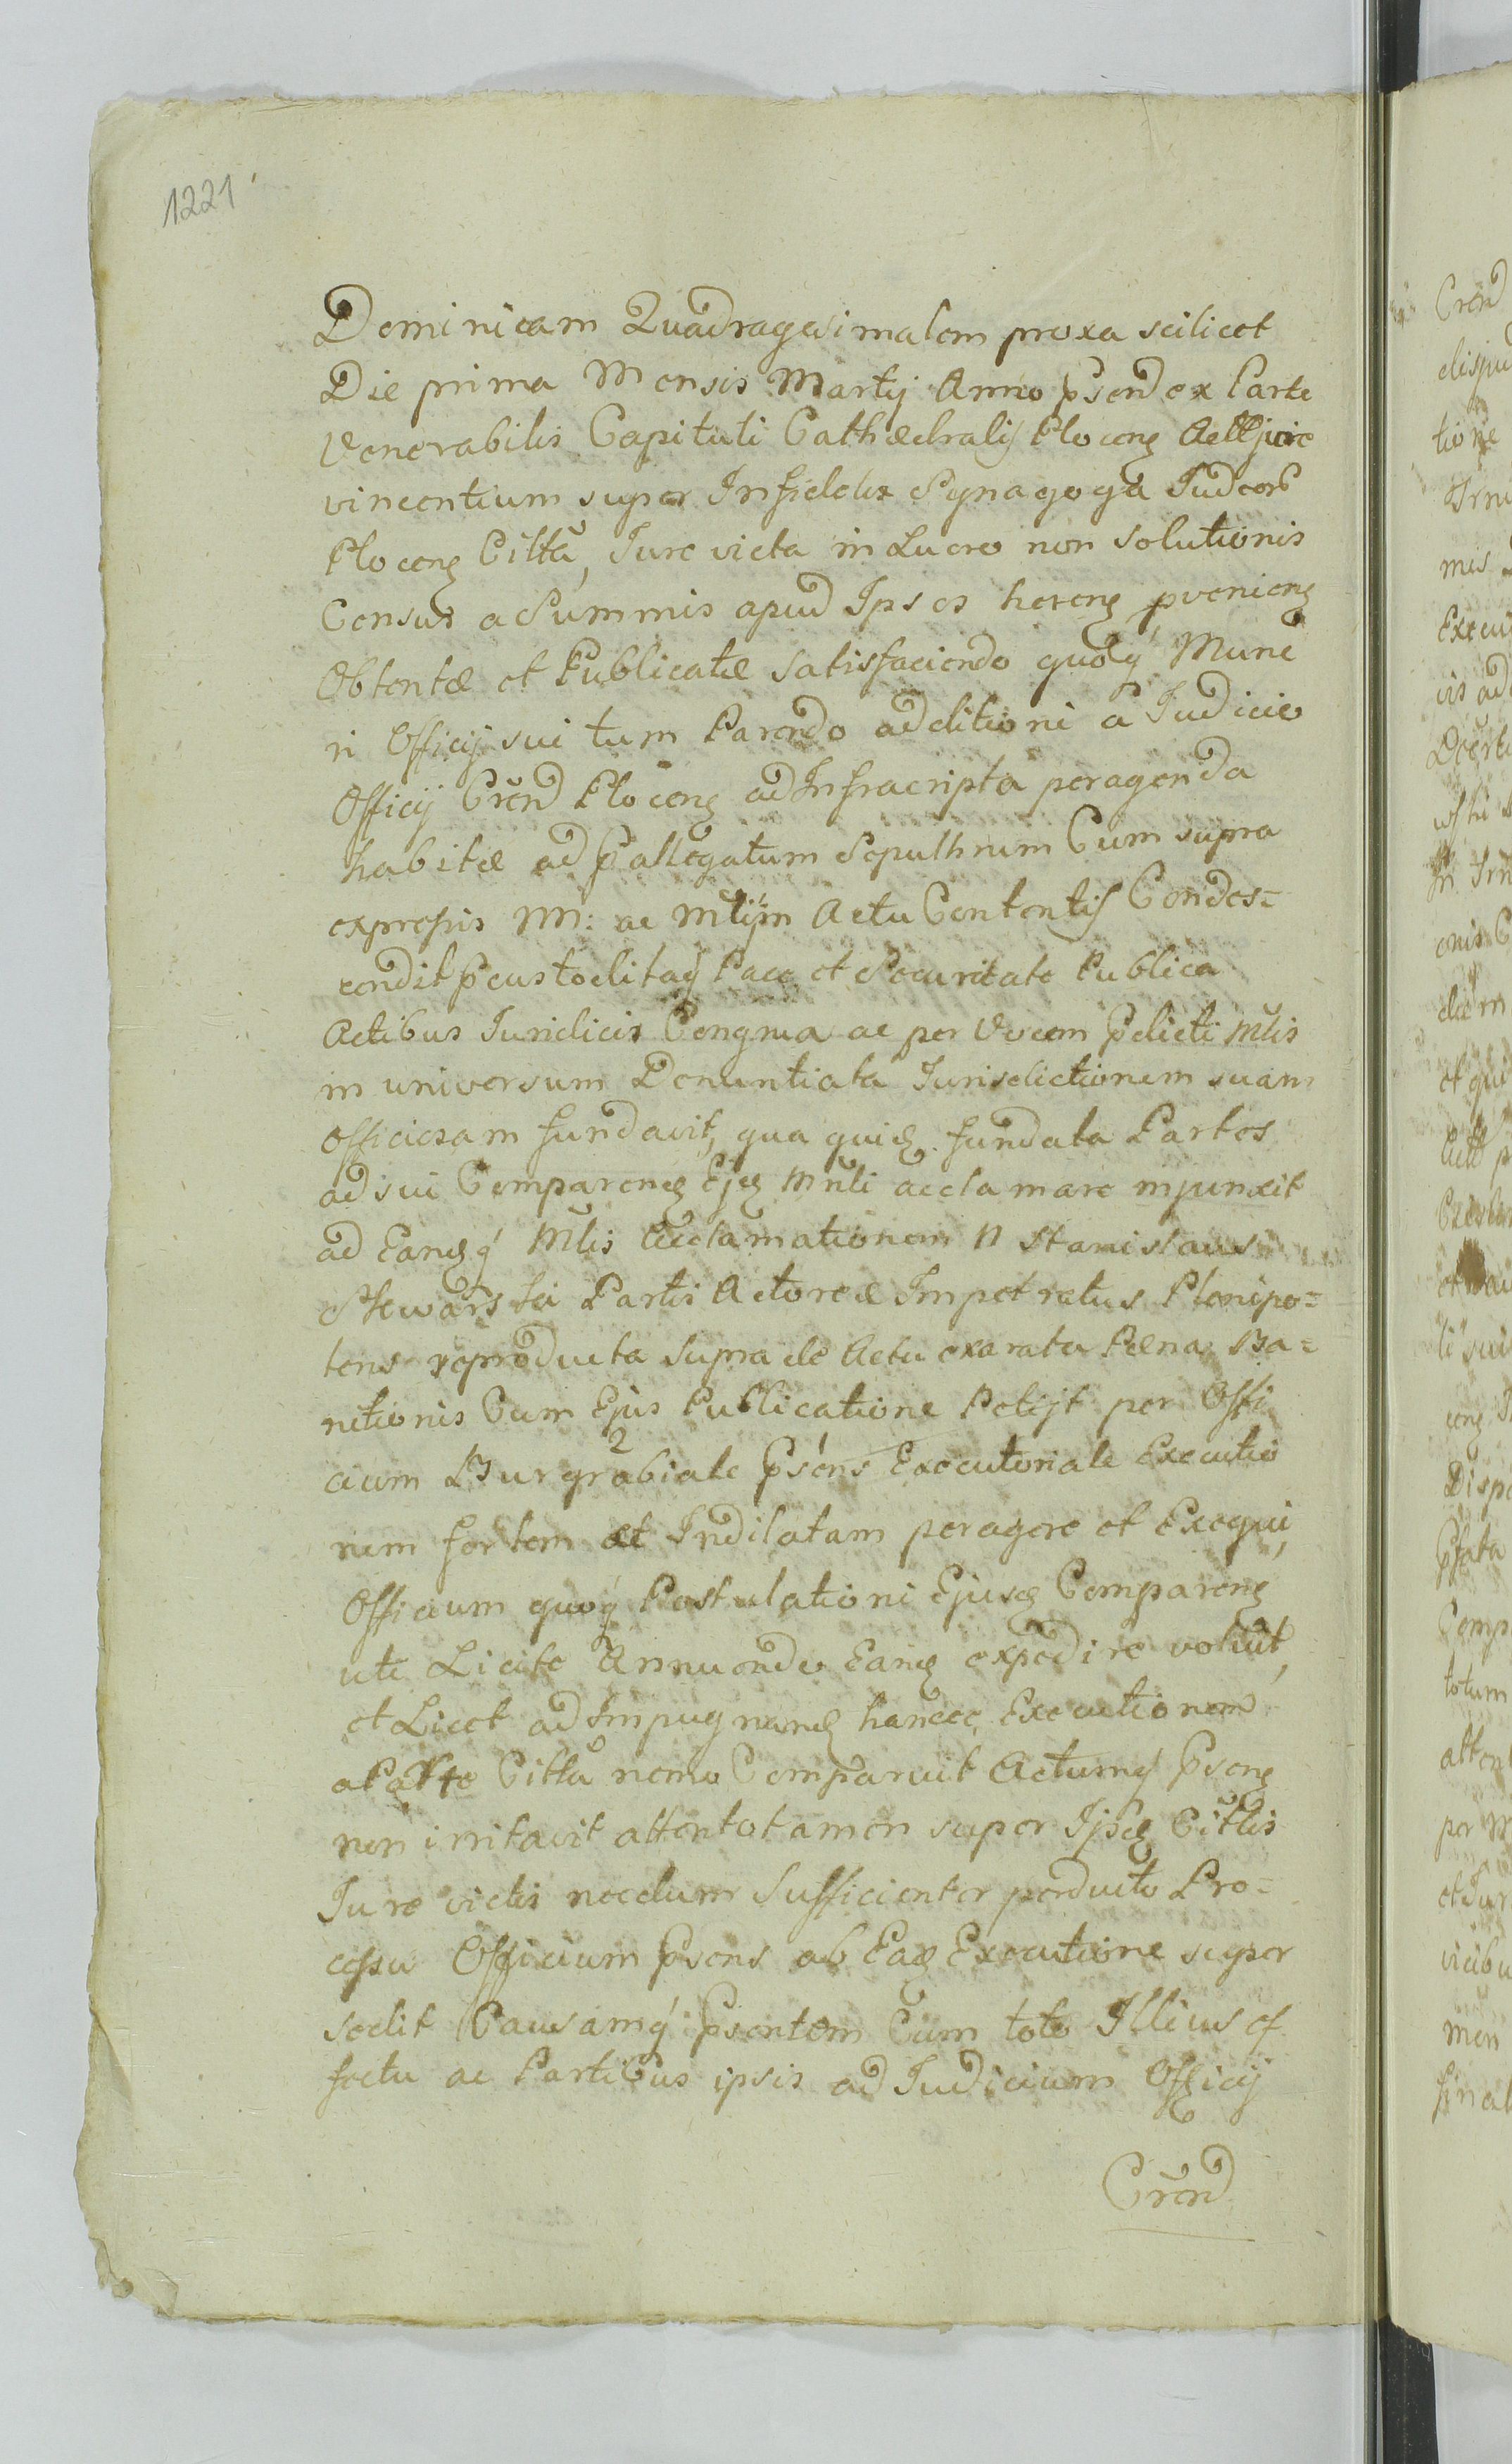 1221
Dominicam Quadragesimalem proxa scilicet
Die prima Mensis Martij Anno Psend ex Parte
Venerabilis Capituli Cathedralis Plocen Act jure
vincentium super Infidelis Synagoga Judeor
Plocen Citta, Jure victa in Lucro non Solutionis
Census a Summis apud Ipsos heren pvenien
Obtentæ et Publicatæ satisfaciendo quoq Mune
ri Officij sui tum Parendo additioni a Judicio
Officij Crend Plocen ad Infrascripta peragenda
habitæ ad Pallegatum Sepulhrum Cum supra
expressis M: ac Mtijm Actu Contentis Condes=
cendit Pcustoditaq Pace et Securitate Publica
Actibus Juridicis Congrua ac per Vocem Pdicti Mtlis
in universum Denuntiata Jurisdictionem suam
Officiosam fundavit, qua quid fundata Partes
ad sui Comparend Ejq Mnli acclamare injunxit
ad Eandq Mlis Acclamationem N Stanislaus
Skwarski Partis Actoreæ Impetratus Plenipo=
tens reproducta supra de Actu exarata Pæna Ba=
nitionis Cum Ejus Publicatione Petijt per Offi
cium Burgrabiale Psens Executoriale Executio
nem fortem et Indilatam peragere et Exequi,
Officium quoq Postulationi Ejusd Comparen
uti Licite Annuendo Eand expedire voluit,
et Licet ad Impugnand hancce Executionem
a Parte Citta nemo Comparuit Actumq Psen
non irritavit attento tamen super Ipsd Cittis
Jure victis necdum Sufficienter perducto Pro=
cessu Officium Psens ab Ead Executione super
sedit Causamq Psentem Cum toto Illius ef
fectu ac Partibus ipsis ad Judicium Officij
Crend